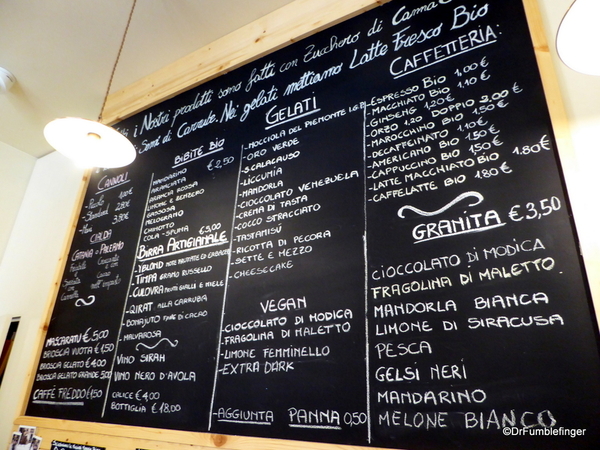 I Nostri prodotti sono fatti con Zucchero di Canna
Semi di Carrube. Nei gelati mettiamo Latte Fresco Bio
CANNOLI
-Piccolo
-Standard 2.80
-Maxi 3.80€
CIALDA
CATANIA - PALERMO
MASCARATU €5,00
BRIOSCIA VUOTA €1,50
BRIOSCIA GELATO €4,00
BRIOSCIA GELATO GRANDE 5,00
CAFFÈ FREDDO €1,50
BIBITE BIO
€2,50
-MANDARINO
-ARANCIATA
-ARANCIA ROSSA
-LIMONE E ZENZERO
-GASSOSA
-MELOGRANO
-CHINOTTO
-COLA-SPUMA €3,00
BIRRA ARTIGIANALE
-TIMPA GRANO RUSSELLO
-QIRAT ALLA CARRUBIA
-BONAJUTO FAVE DI CACAO
-MALVAROSA
-VINO SIRAH
-VINO NERO D'AVOLA
CALICE €4,00
BOTTIGLIA €18,00
GELATI
-NOCCIOLA DEL PIEMONTE I.G.P.
-ORO VERDE
-SCALACAUSO
-LICCUMIA
-MANDORLA
-CIOCCOLATO VENEZUELA
-CREMA DI TASTA
-COCCO STRACCIATO
-TASTAMISÙ
-RICOTTA DI PECORA
-SETTE E MEZZO
-CHEESECAKE
VEGAN
-CIOCCOLATO DI MODICA
-FRAGOLINA DI MALETTO
-LIMONE FEMMINELLO
-EXTRA DARK
-AGGIUNTA PANNA 0,50
CAFFETTERIA:
-ESPRESSO BIO 1,00€
-MACCHIATO BIO 1.10€
-GINSENG 1,20€
-ORZO 1.20 DOPPIO 2,00€
-MAROCCHINO BIO 1.50€
-DECAFFEINATO 1.10€
-AMERICANO BIO 1.50€
-CAPPUCCINO BIO 1.50€
-LATTE MACCHIATO BIO 1.80€
-CAFFELATTE BIO 1.80€
GRANITA €3,50
CIOCCOLATO DI MODICA
FRAGOLINA DI MALETTO
MANDORLA BIANCA
LIMONE DI SIRACUSA
PESCA
GELSI NERI
MANDARINO
MELONE BIANCO
©DrFumblefinger